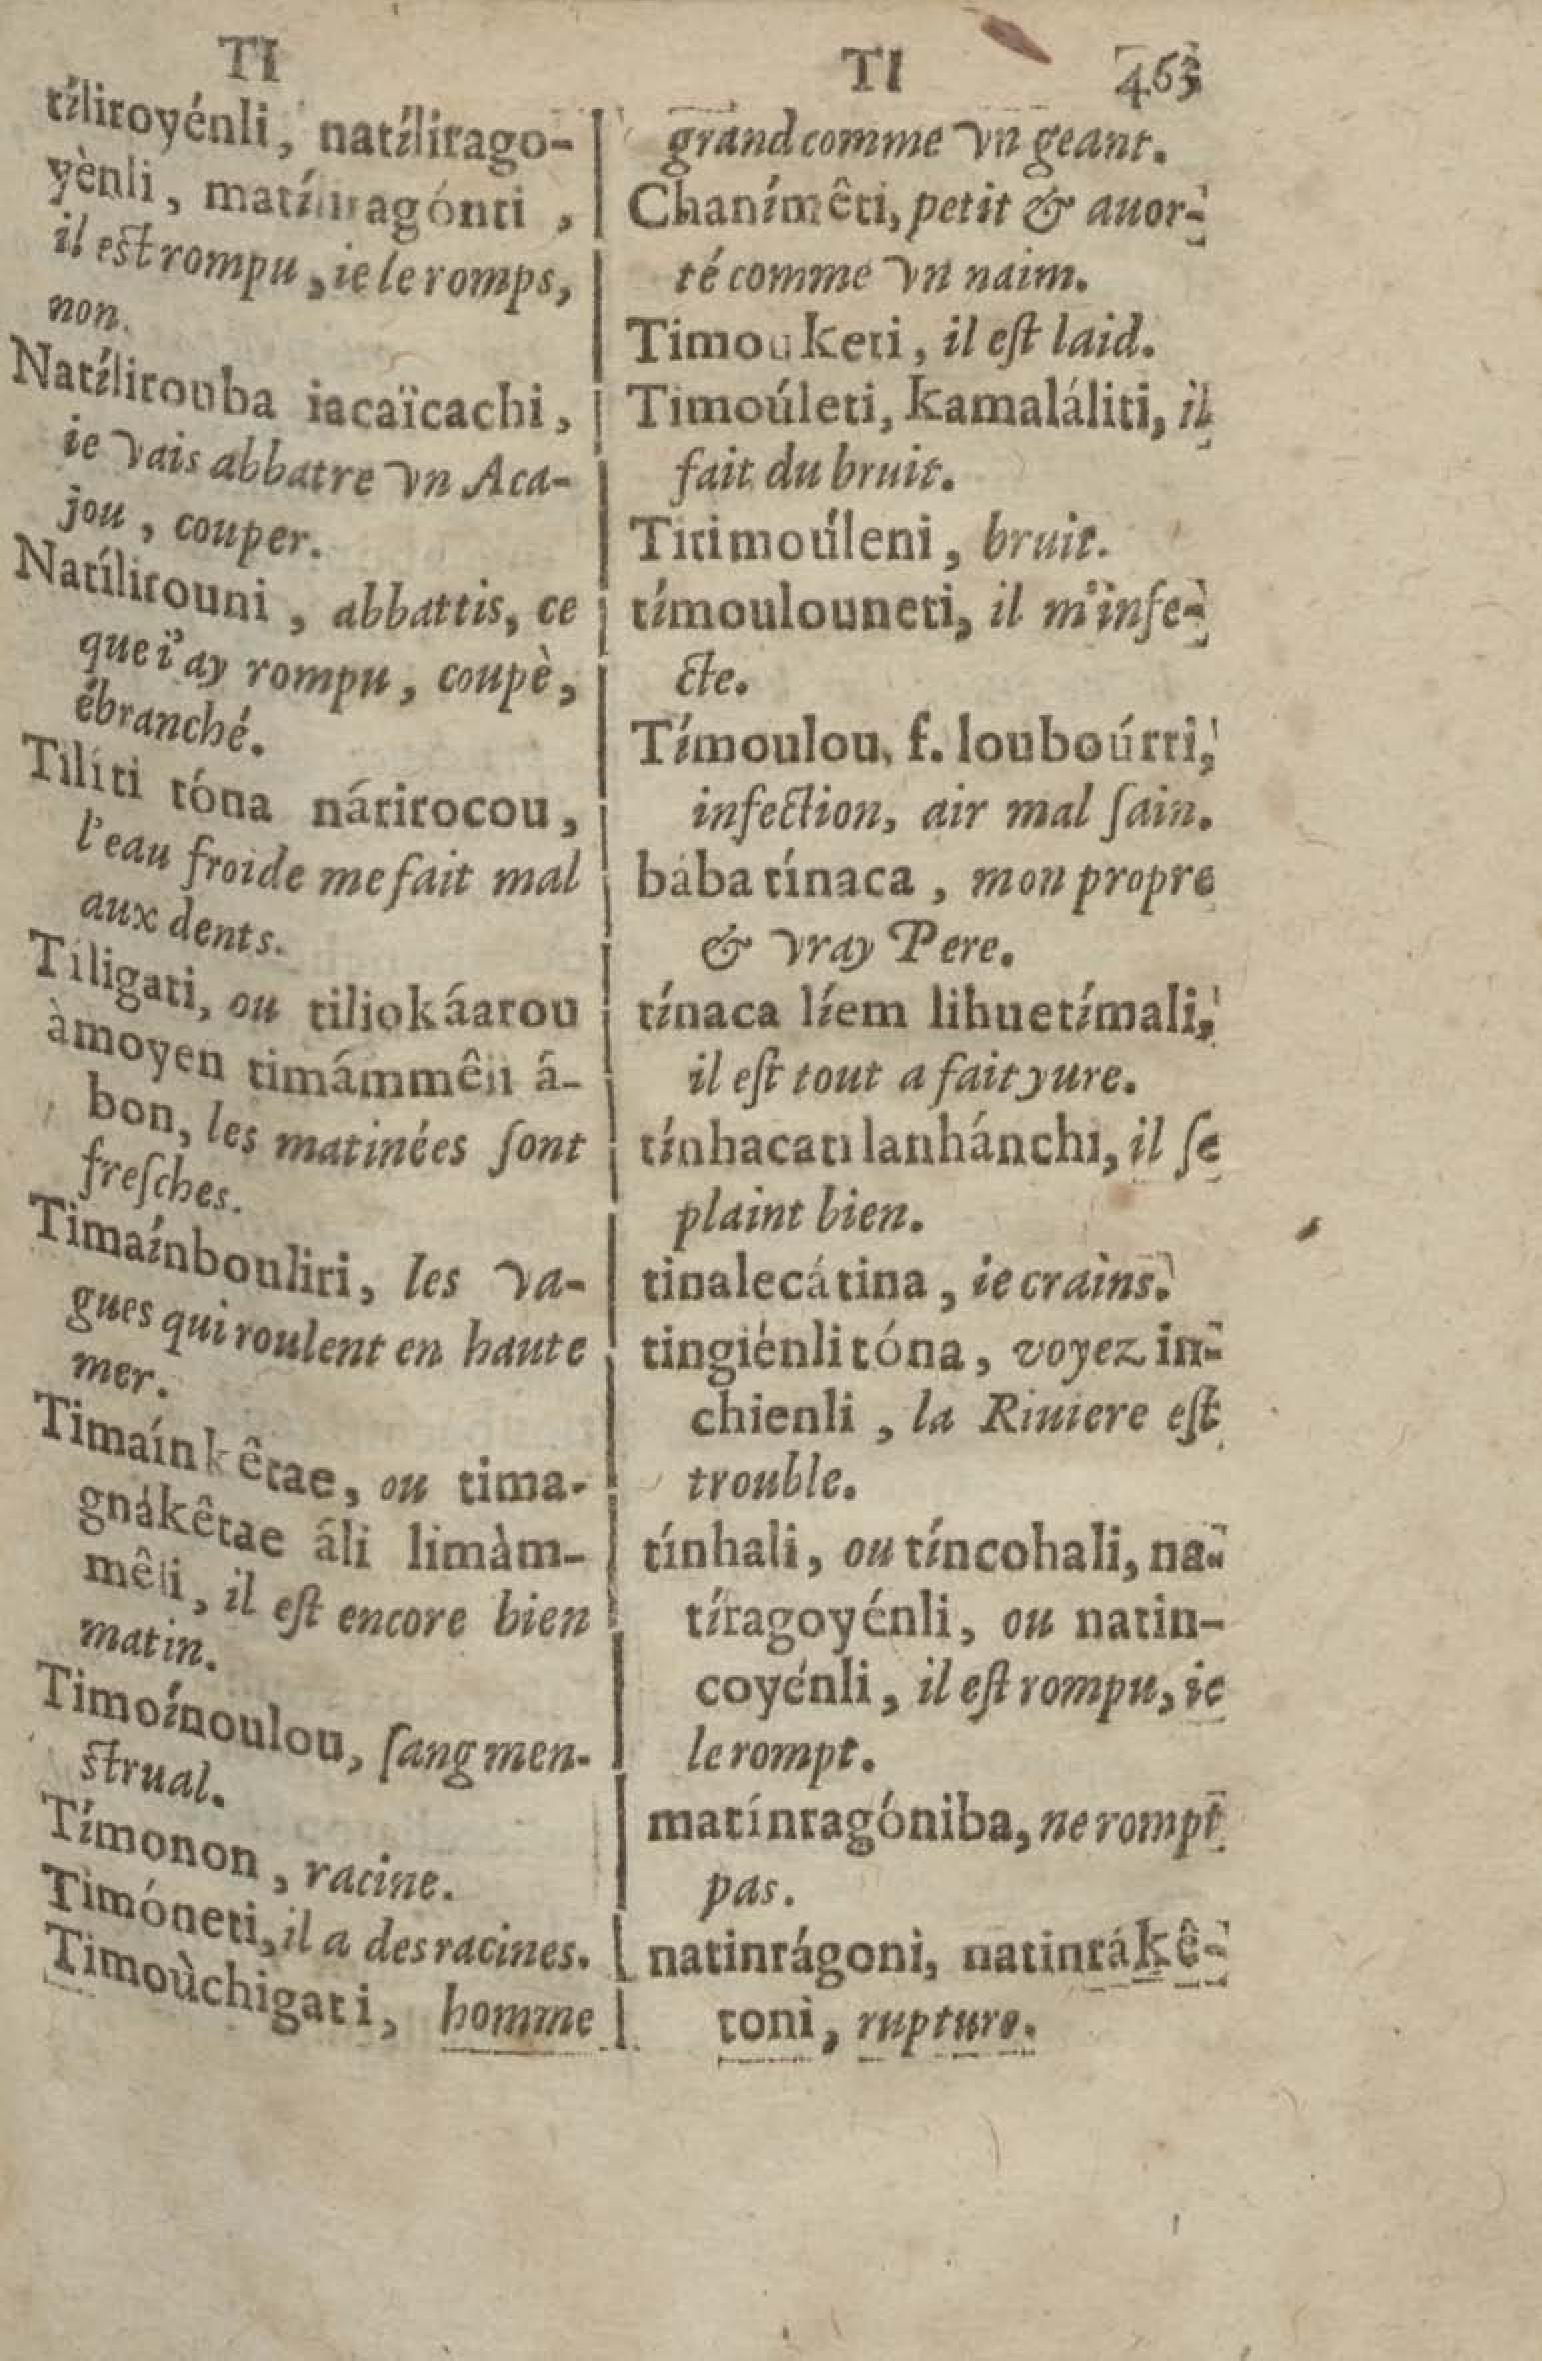 TI
tíliroyénli, natílírago-
yènli, matíliragónti,
il est rompu, ie le romps,
non.
Natílirouba iacaïcachi,
ie vais abbatre vn Aca-
jou, couper.
Natílirouni, abbattis, ce
que i'ay rompu, coupè,
ébranché.
Tilíti tóna nárirocou,
l'eau froide me fait mal
aux dents.
Tíligati, ou tiliokáarou
àmoyen timámmêli á-
bon, les matinées ſont
freſches.
Timaínbouliri, les va-
gues qui roulent en haute
mer.
Timaínkêtae, ou tima-
gnákêtae áli limàm-
mêli, il eſt encore bien
matin.
Timoínoulou, ſang men-
strual.
Tímonon, racine.
Timóneti, il a des racines.
Timoùchigati, homme
TI 463
grand comme vn geant.
Chanímêti, petit & auor-
té comme vn naim.
Timouketi, il eſt laid.
Timoúleti, kamaláliti, il
fait du bruit.
Titimoúleni, bruit.
tímoulouneti, il m'infe-
cte.
Tímoulou, f. louboúrri,
infection, air mal ſain.
bába tínaca, mon propre
& vray Pere.
tínaca líem lihuetímali,
il eſt tout a fait yure.
tínhacati lanhánchi, il ſe
plaint bien.
tinalecátina, ie crains.
tingiénli tóna, voyez in-
chienli, la Riuiere eſt
trouble.
tínhali, ou tíncohali, na-
tíragoyénli, ou natin-
coyénli, il eſt rompu, ie
le rompt.
matínragóniba, ne rompt
pas.
natinrágoni, natinrákê-
toni, rupture.